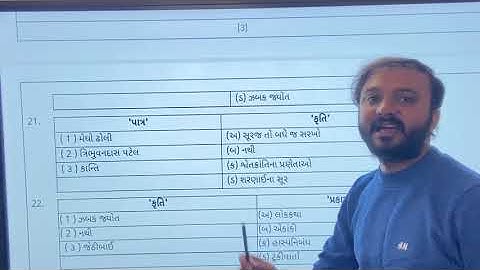 [3]
(ડ) ઝબક જ્યોત
21. 'પાત્ર' 'કૃતિ'
(1) મેઘો ઢોલી (અ) સૂરજ તો બધે જ સરખો
(2) ત્રિભુવનદાસ પટેલ (બ) નથી
(3) કાન્તિ (ક) શ્વેતક્રાંતિના પ્રણેતાઓ
(ડ) શરણાઈના સૂર
22. 'કૃતિ'
(1) ઝબક જ્યોત (અ) લોકકથા
(2) નથી (બ) એકાંકી
(3) જેઠીબાઈ (ક) હાસ્યનિબંધ
(ડ) ટૂંકીવાર્તા